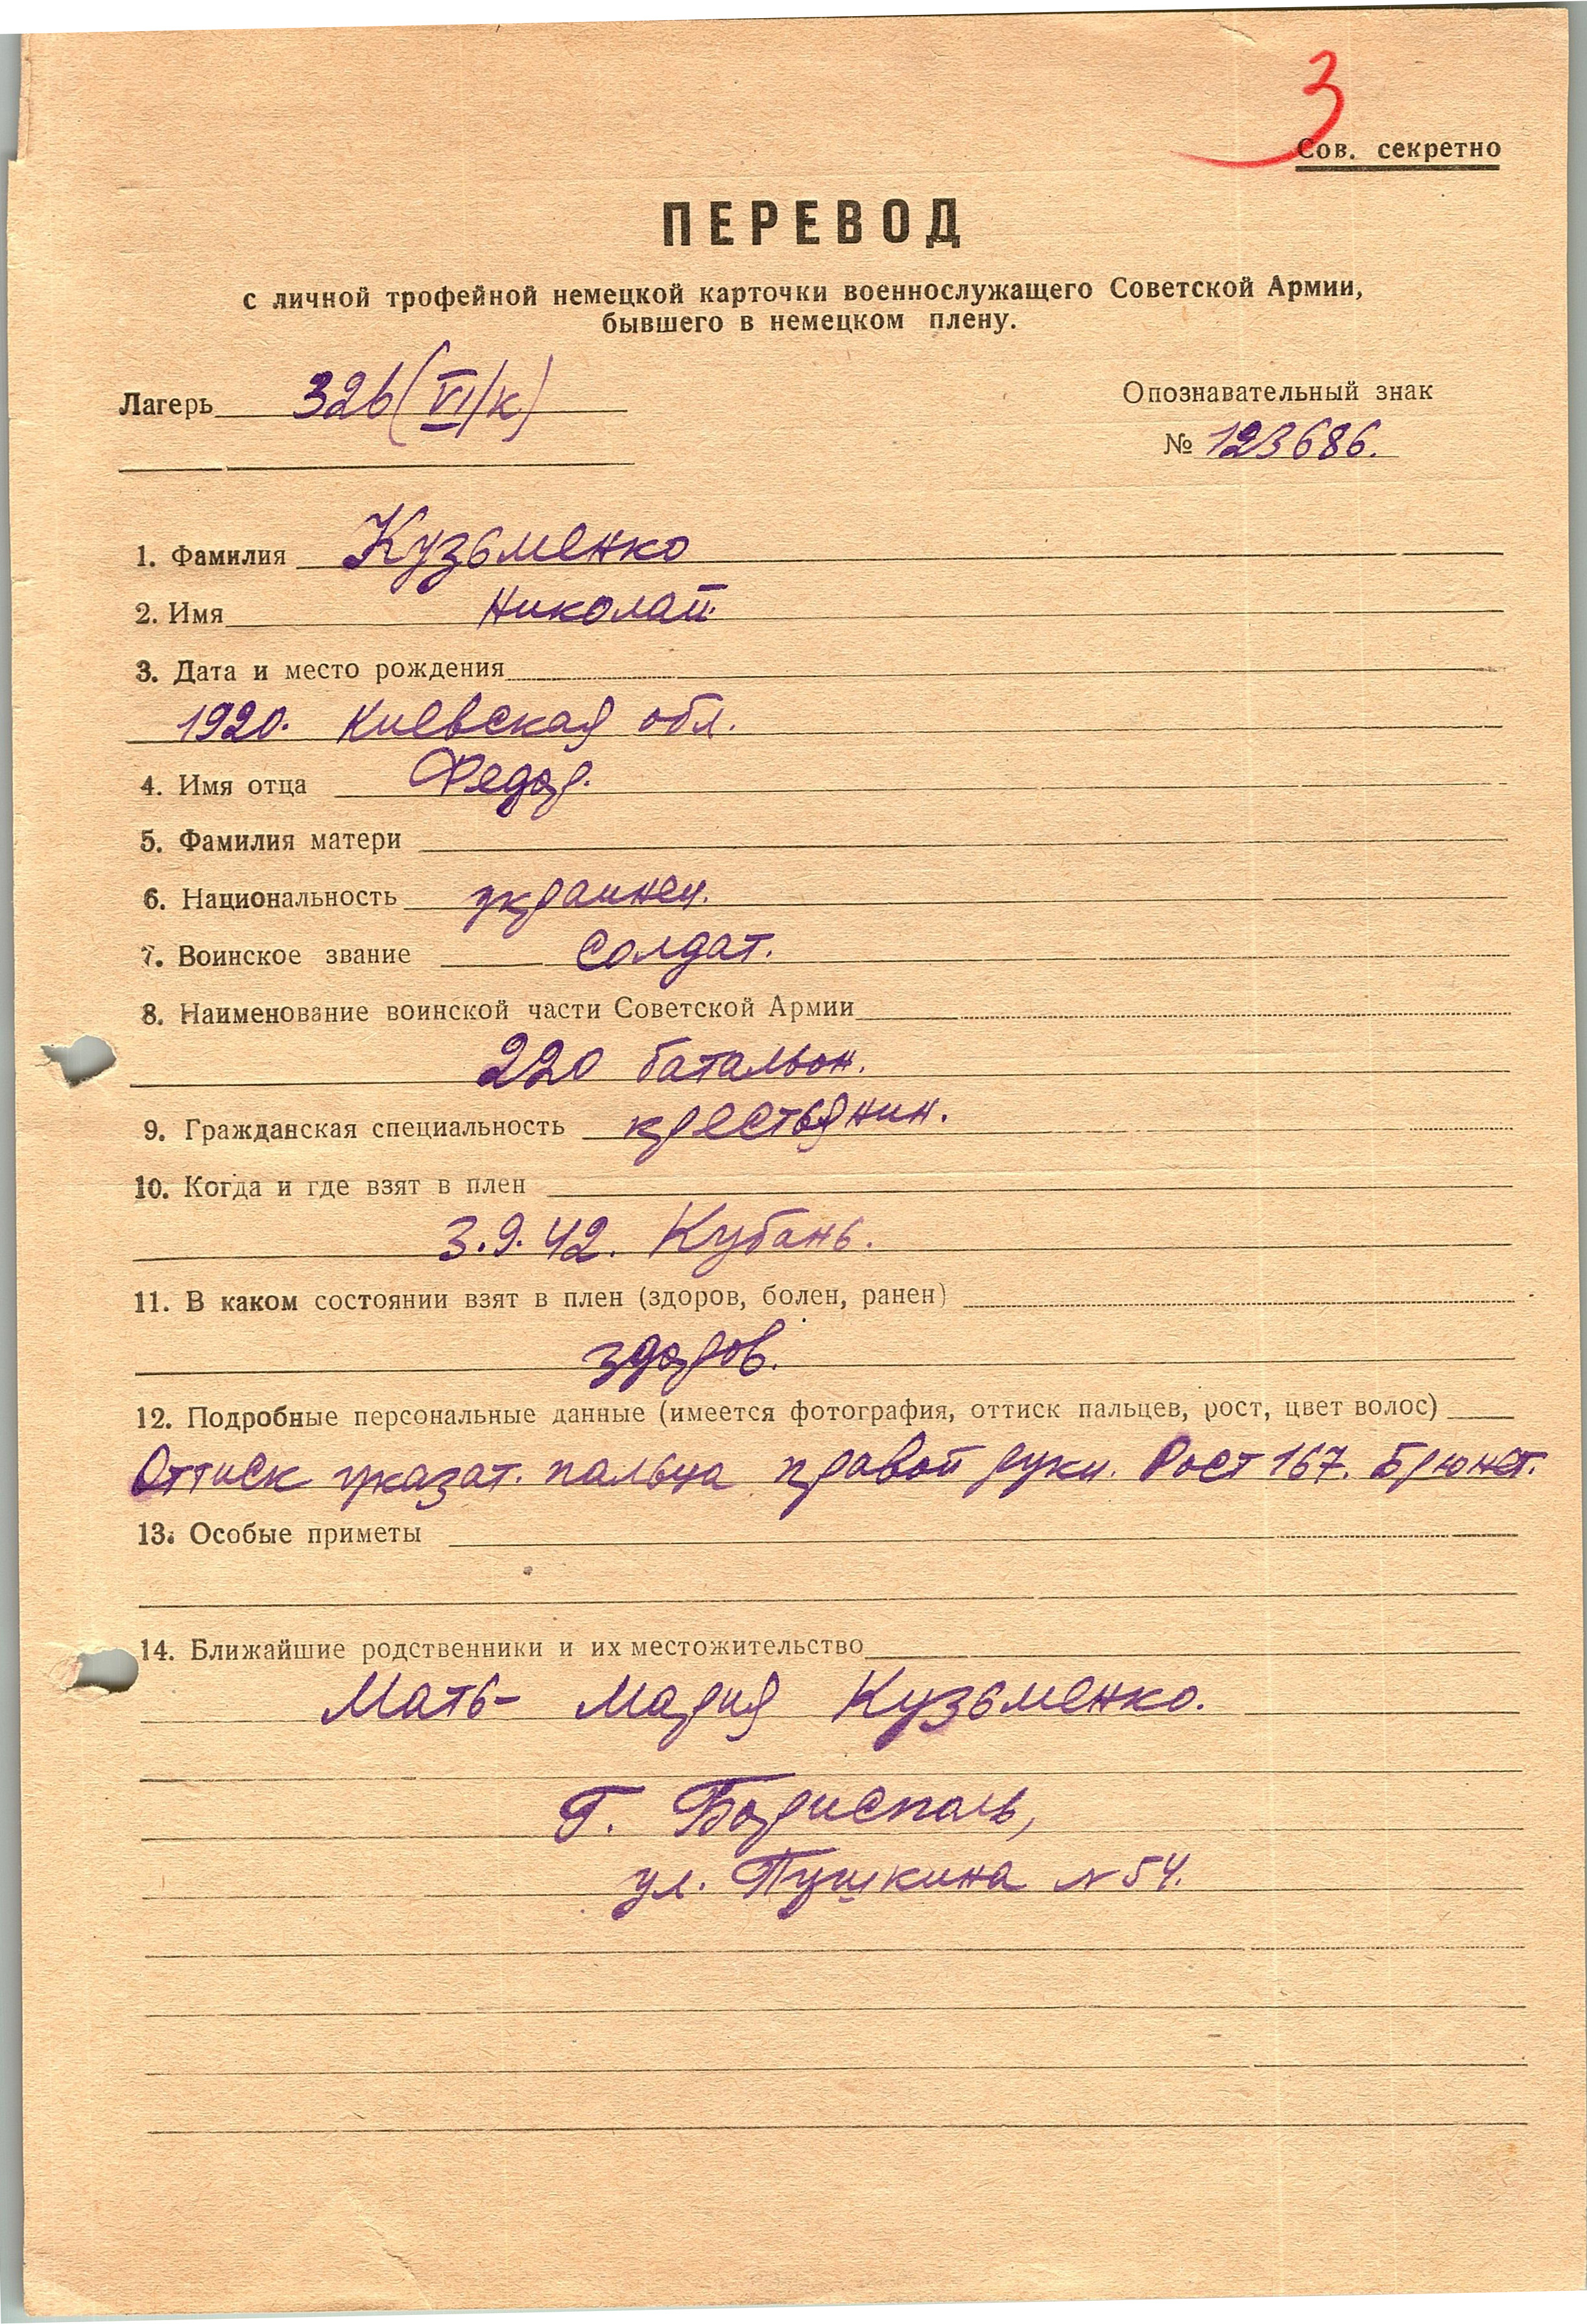 3
Сов. секретно
ПЕРЕВОД
с личной трофейной немецкой карточки военнослужащего Советской Армии,
бывшего в немецком плену.
Лагерь 326 (VI/к)
Опознавательный знак
№ 123686.
1. Фамилия Кузьменко
2. Имя Николай.
3. Дата и место рождения
1920. Киевская обл.
4. Имя отца Федор.
5. Фамилия матери
6. Национальность украинец.
7. Воинское звание Солдат.
8. Наименование воинской части Советской Армии
220 батальон.
9. Гражданская специальность крестьянин.
10. Когда и где взят в плен
3.9.42. Кубань.
11. В каком состоянии взят в плен (здоров, болен, ранен)
здоров.
12. Подробные персональные данные (имеется фотография, оттиск пальцев, рост, цвет волос)
Оттиск указат. пальца правой руки. Рост 167. Брюнет.
13. Особые приметы
14. Ближайшие родственники и их местожительство
Мать - Мария Кузьменко.
Г. Борисполь,
ул. Пушкина N 54.